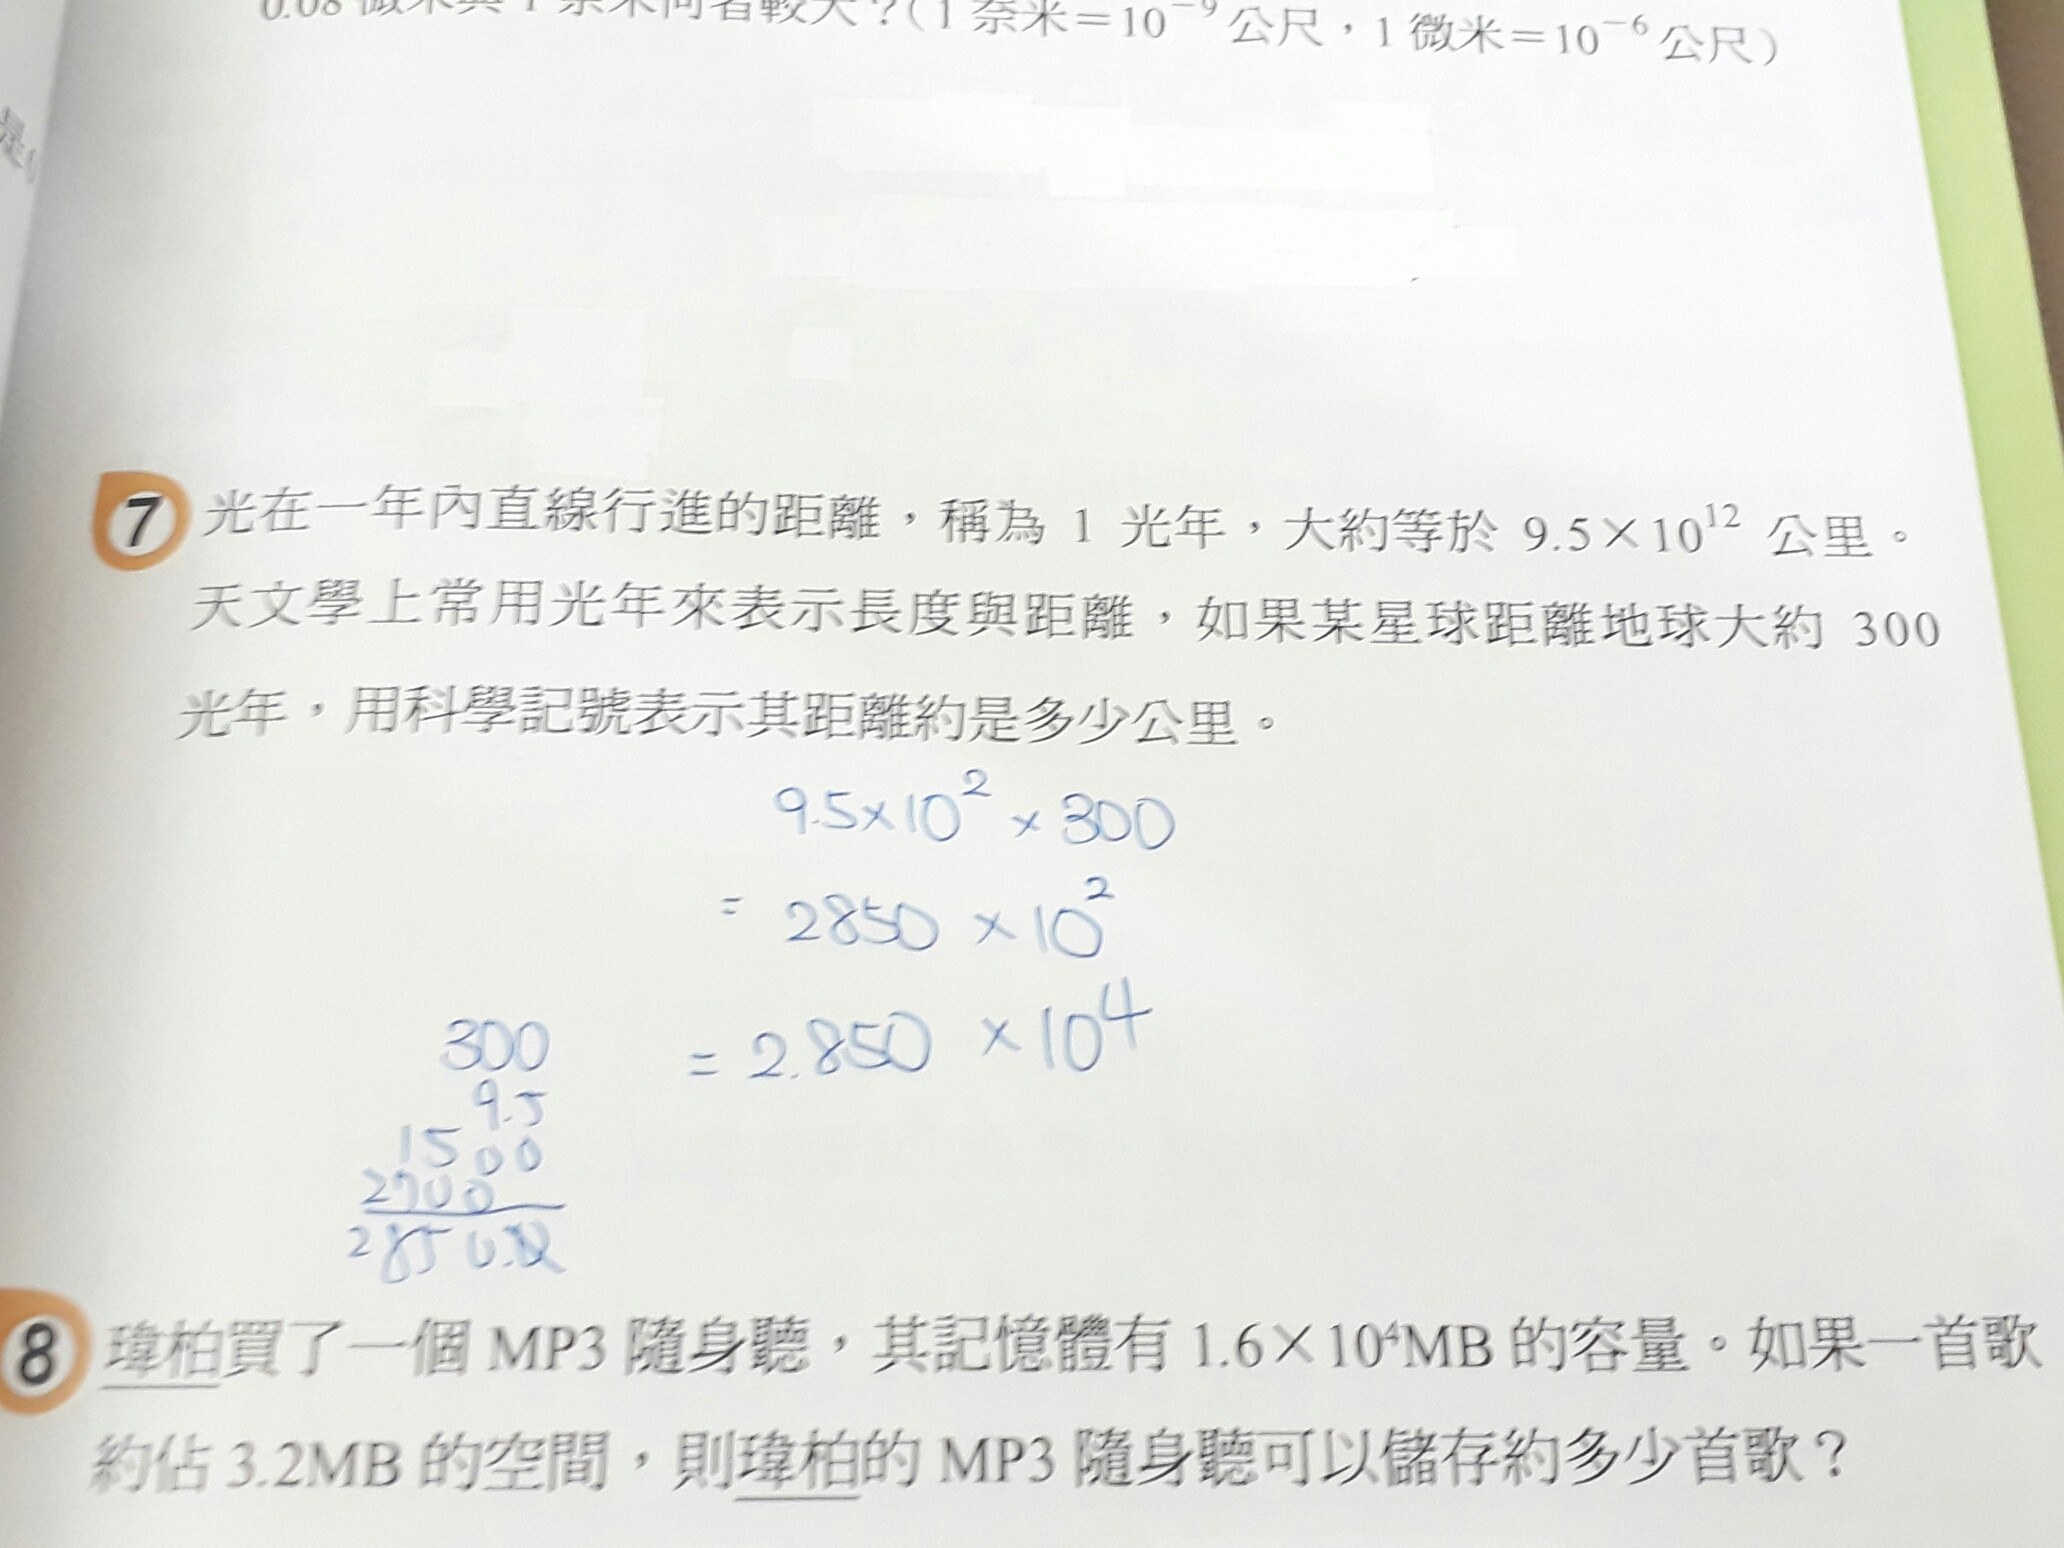 0.08 微米與 1 奈米何者較大？(1 奈米＝10⁻⁹ 公尺，1 微米＝10⁻⁶ 公尺)
是
7 光在一年內直線行進的距離，稱為 1 光年，大約等於 9.5×10¹² 公里。
天文學上常用光年來表示長度與距離，如果某星球距離地球大約 300
光年，用科學記號表示其距離約是多少公里。
9.5×10² × 300
= 2850 ×10²
= 2.850 ×10⁴
300
9.5
1500
2700
2850.
8 瑋柏買了一個 MP3 隨身聽，其記憶體有 1.6×10⁴MB 的容量。如果一首歌
約佔 3.2MB 的空間，則瑋柏的 MP3 隨身聽可以儲存約多少首歌？